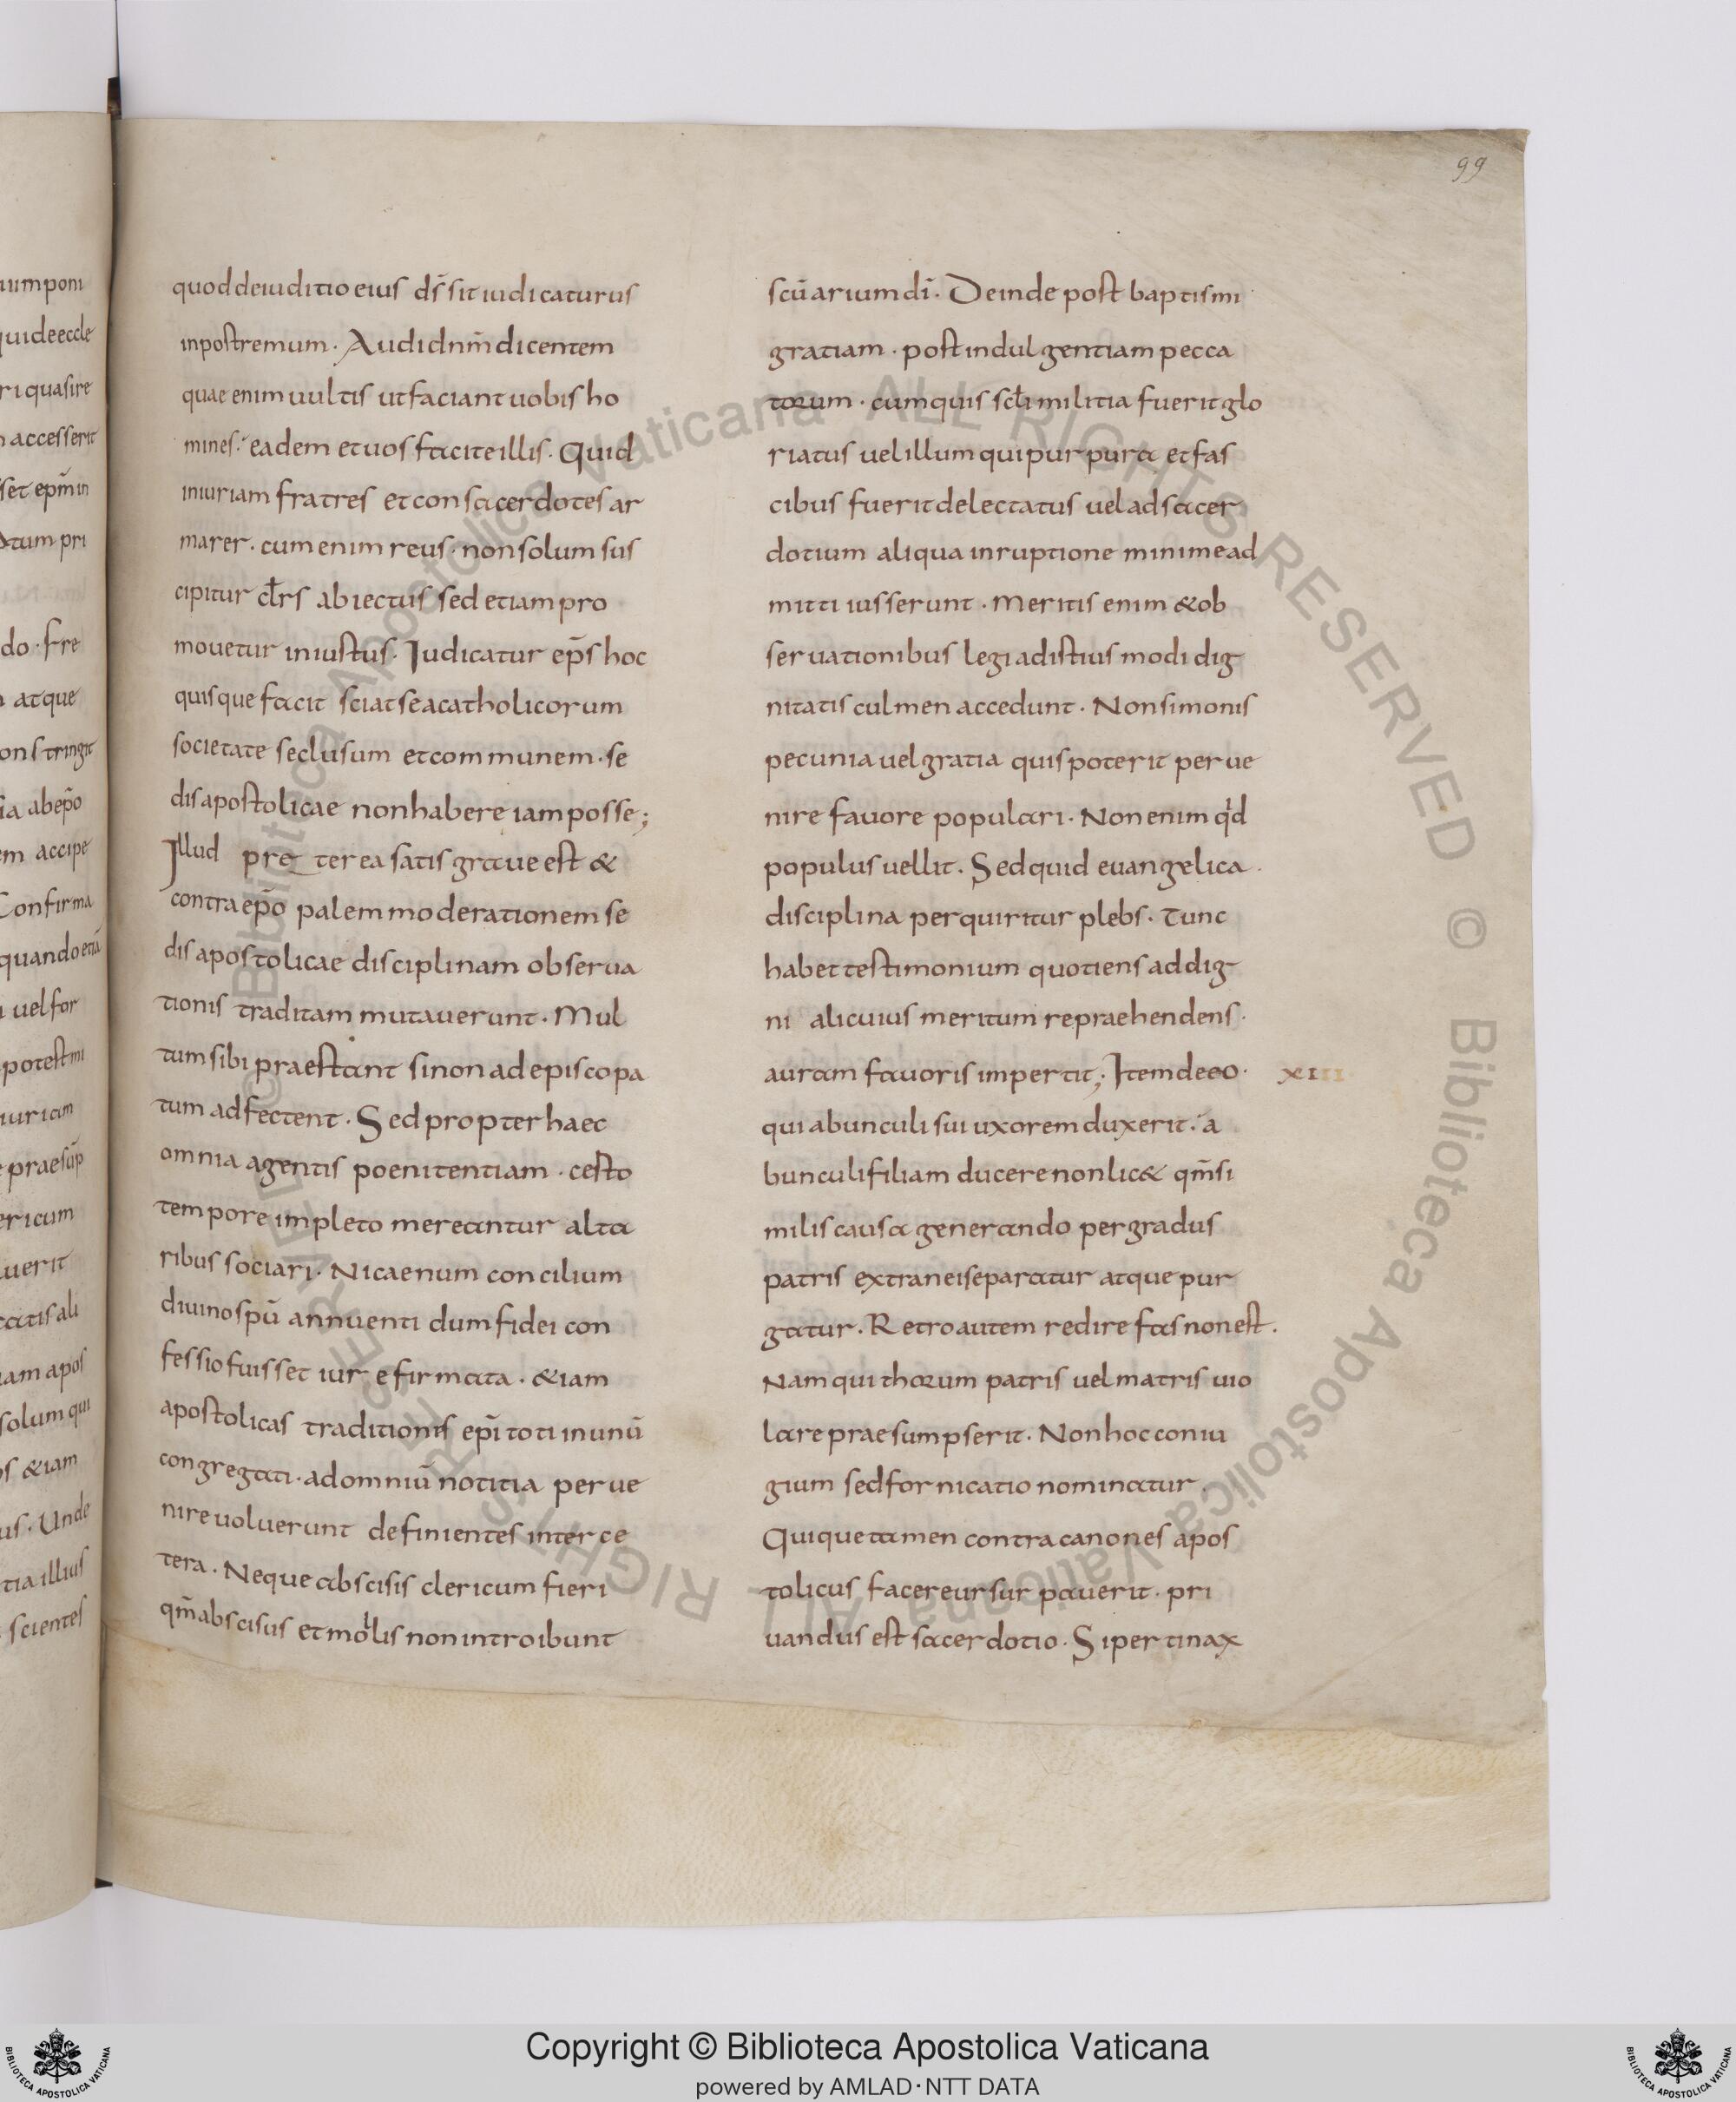 99
quod de iuditio eius ds̄ sit iudicaturus
in postremum. Audi dnm̄ dicentem
quae enim uultis ut faciant uobis ho
mines. eadem et uos facite illis. Quid
iniuriam fratres et consacerdotes ar
marer. cum enim reus. non solum sus
cipitur cl̄rs abiectus sed etiam pro
mouetur iniustus. Iudicatur ep̄s hoc
quisque facit sciat se a catholicorum
societate seclusum et communem. se
dis apostolicae non habere iam posse;
Illud pręterea satis graue est &
contra ep̄opalem moderationem se
dis apostolicae disciplinam obserua
tionis traditam mutauerunt. Mul
tum sibi praestant si non ad episcopa
tum adfectent. Sed propter haec
omnia agentis poenitentiam. cesto
tempore impleto mereantur alta
ribus sociari. Nicaenum concilium
diuino spū annuenti dum fidei con
fessio fuisset iure firmata. &iam
apostolicas traditionis epī toti in unū
congregati. ad omniū notitia perue
nire uoluerunt definientes inter ce
tera. Neque abscisis clericum fieri
qm̄ abscisus et mollis non introibunt
scūarium dī. Deinde post baptismi
gratiam. post indulgentiam pecca
torum. cum quis scl̄i militia fuerit glo
riatus uel illum qui purpura et fas
cibus fuerit delectatus uel ad sacer
dotium aliqua inruptione minime ad
mitti iusserunt. Meritis enim & ob
seruationibus legi ad istius modi dig
nitatis culmen accedunt. Non simonis
pecunia uel gratia quis poterit perue
nire fauore populari. Non enim qd
populus uellit. Sed quid euangelica
disciplina perquiritur plebs. Tunc
habet testimonium quotiens ad dig
ni alicuius meritum repraehendens.
auram fauoris impertit; Item de eo. XIIII
qui abunculi sui uxorem duxerit. a
bunculi filiam ducere non lic& qm̄ si
milis causa generando per gradus
patris extranei separatur atque pur
gatur. Retro autem redire fas non est.
Nam qui thorum patris uel matris uio
lare praesumpserit. Non hoc coniu
gium sed fornicatio nominatur.
Quique tamen contra canones apos
tolicus facere usurpauerit. pri
uandus est sacerdotio. Si pertinax
Copyright © Biblioteca Apostolica Vaticana
powered by AMLAD·NTT DATA